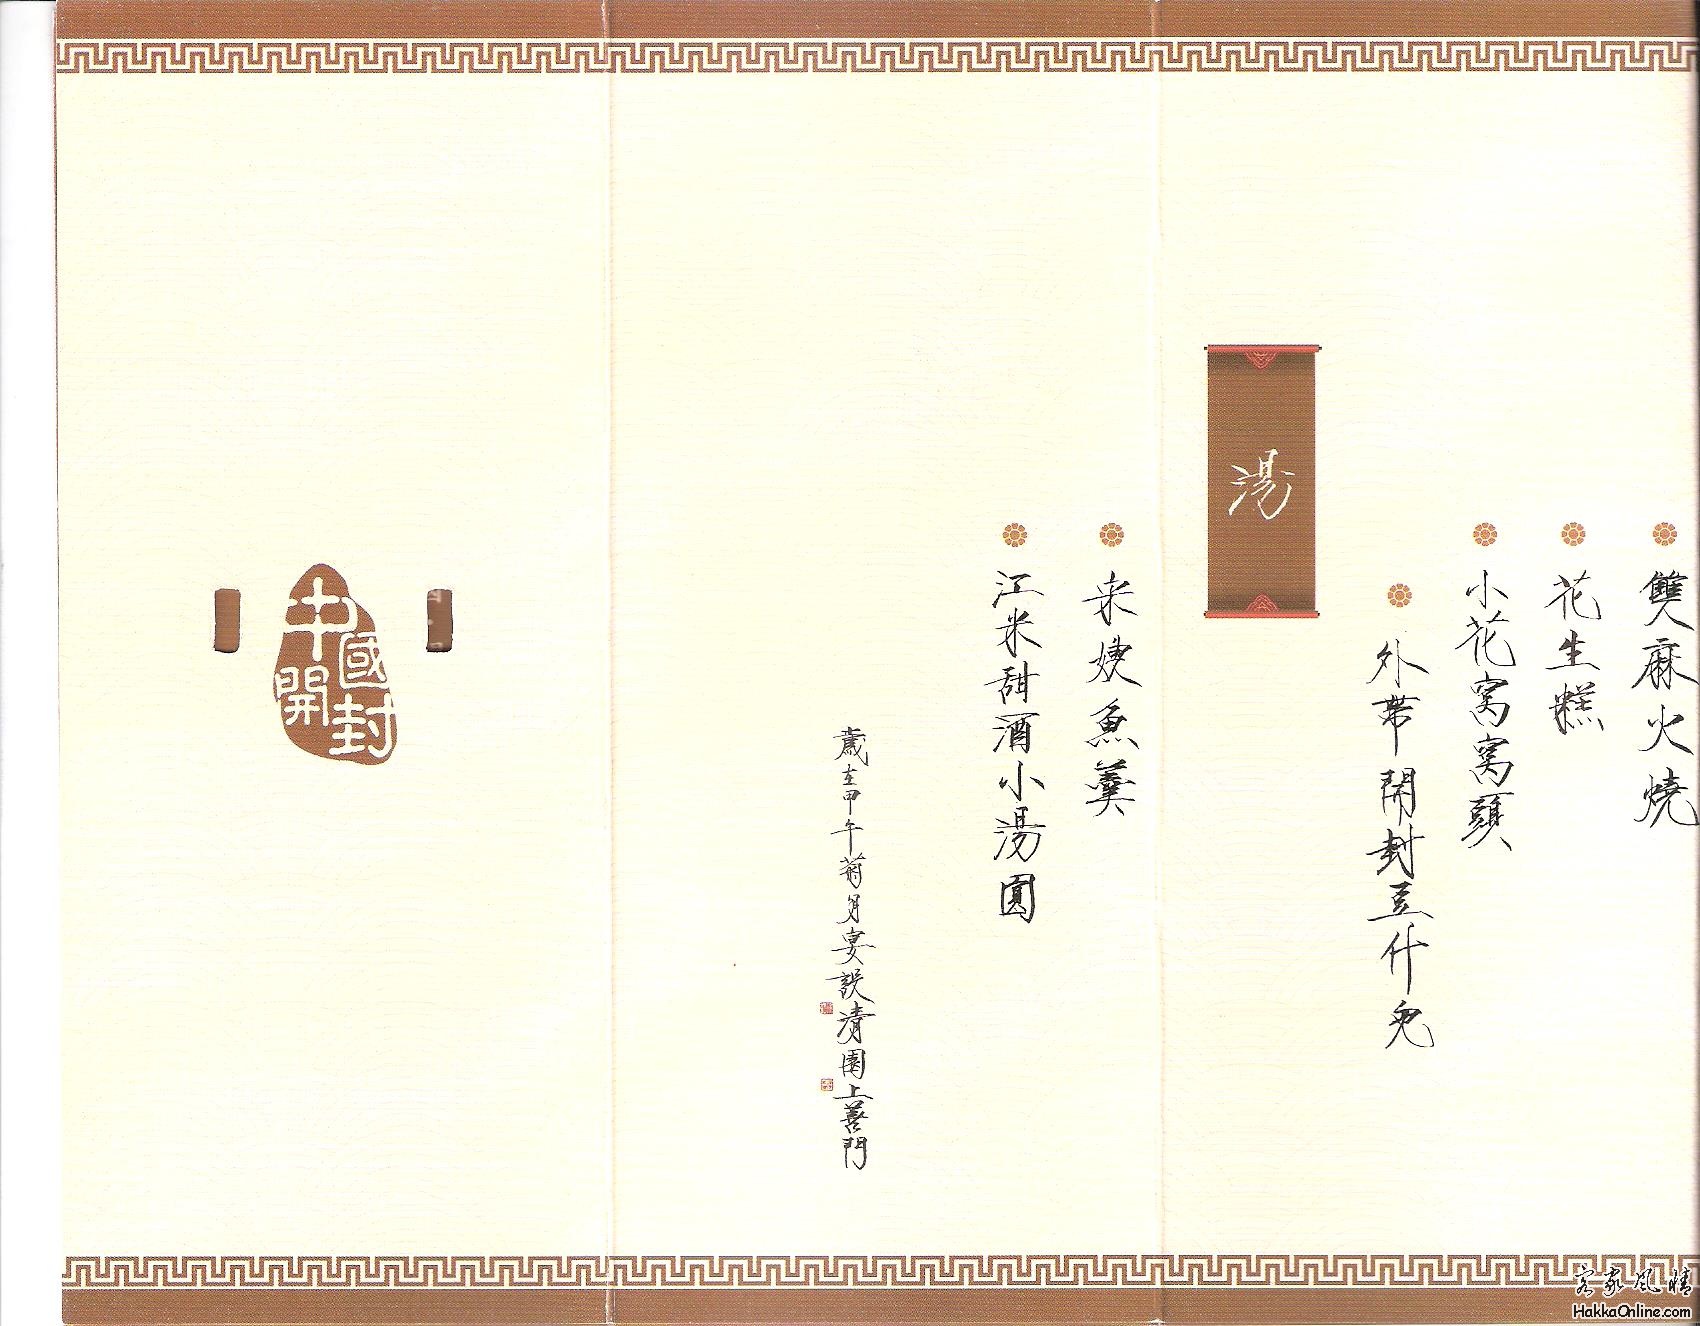 雙麻火燒
花生糕
小花窝窝頭
外帶開封豆什兒
湯
宋嫂魚羹
江米甜酒小湯圓
歲在甲午菊月宴設清園上善門
中國開封
客家風情
HakkaOnline.com